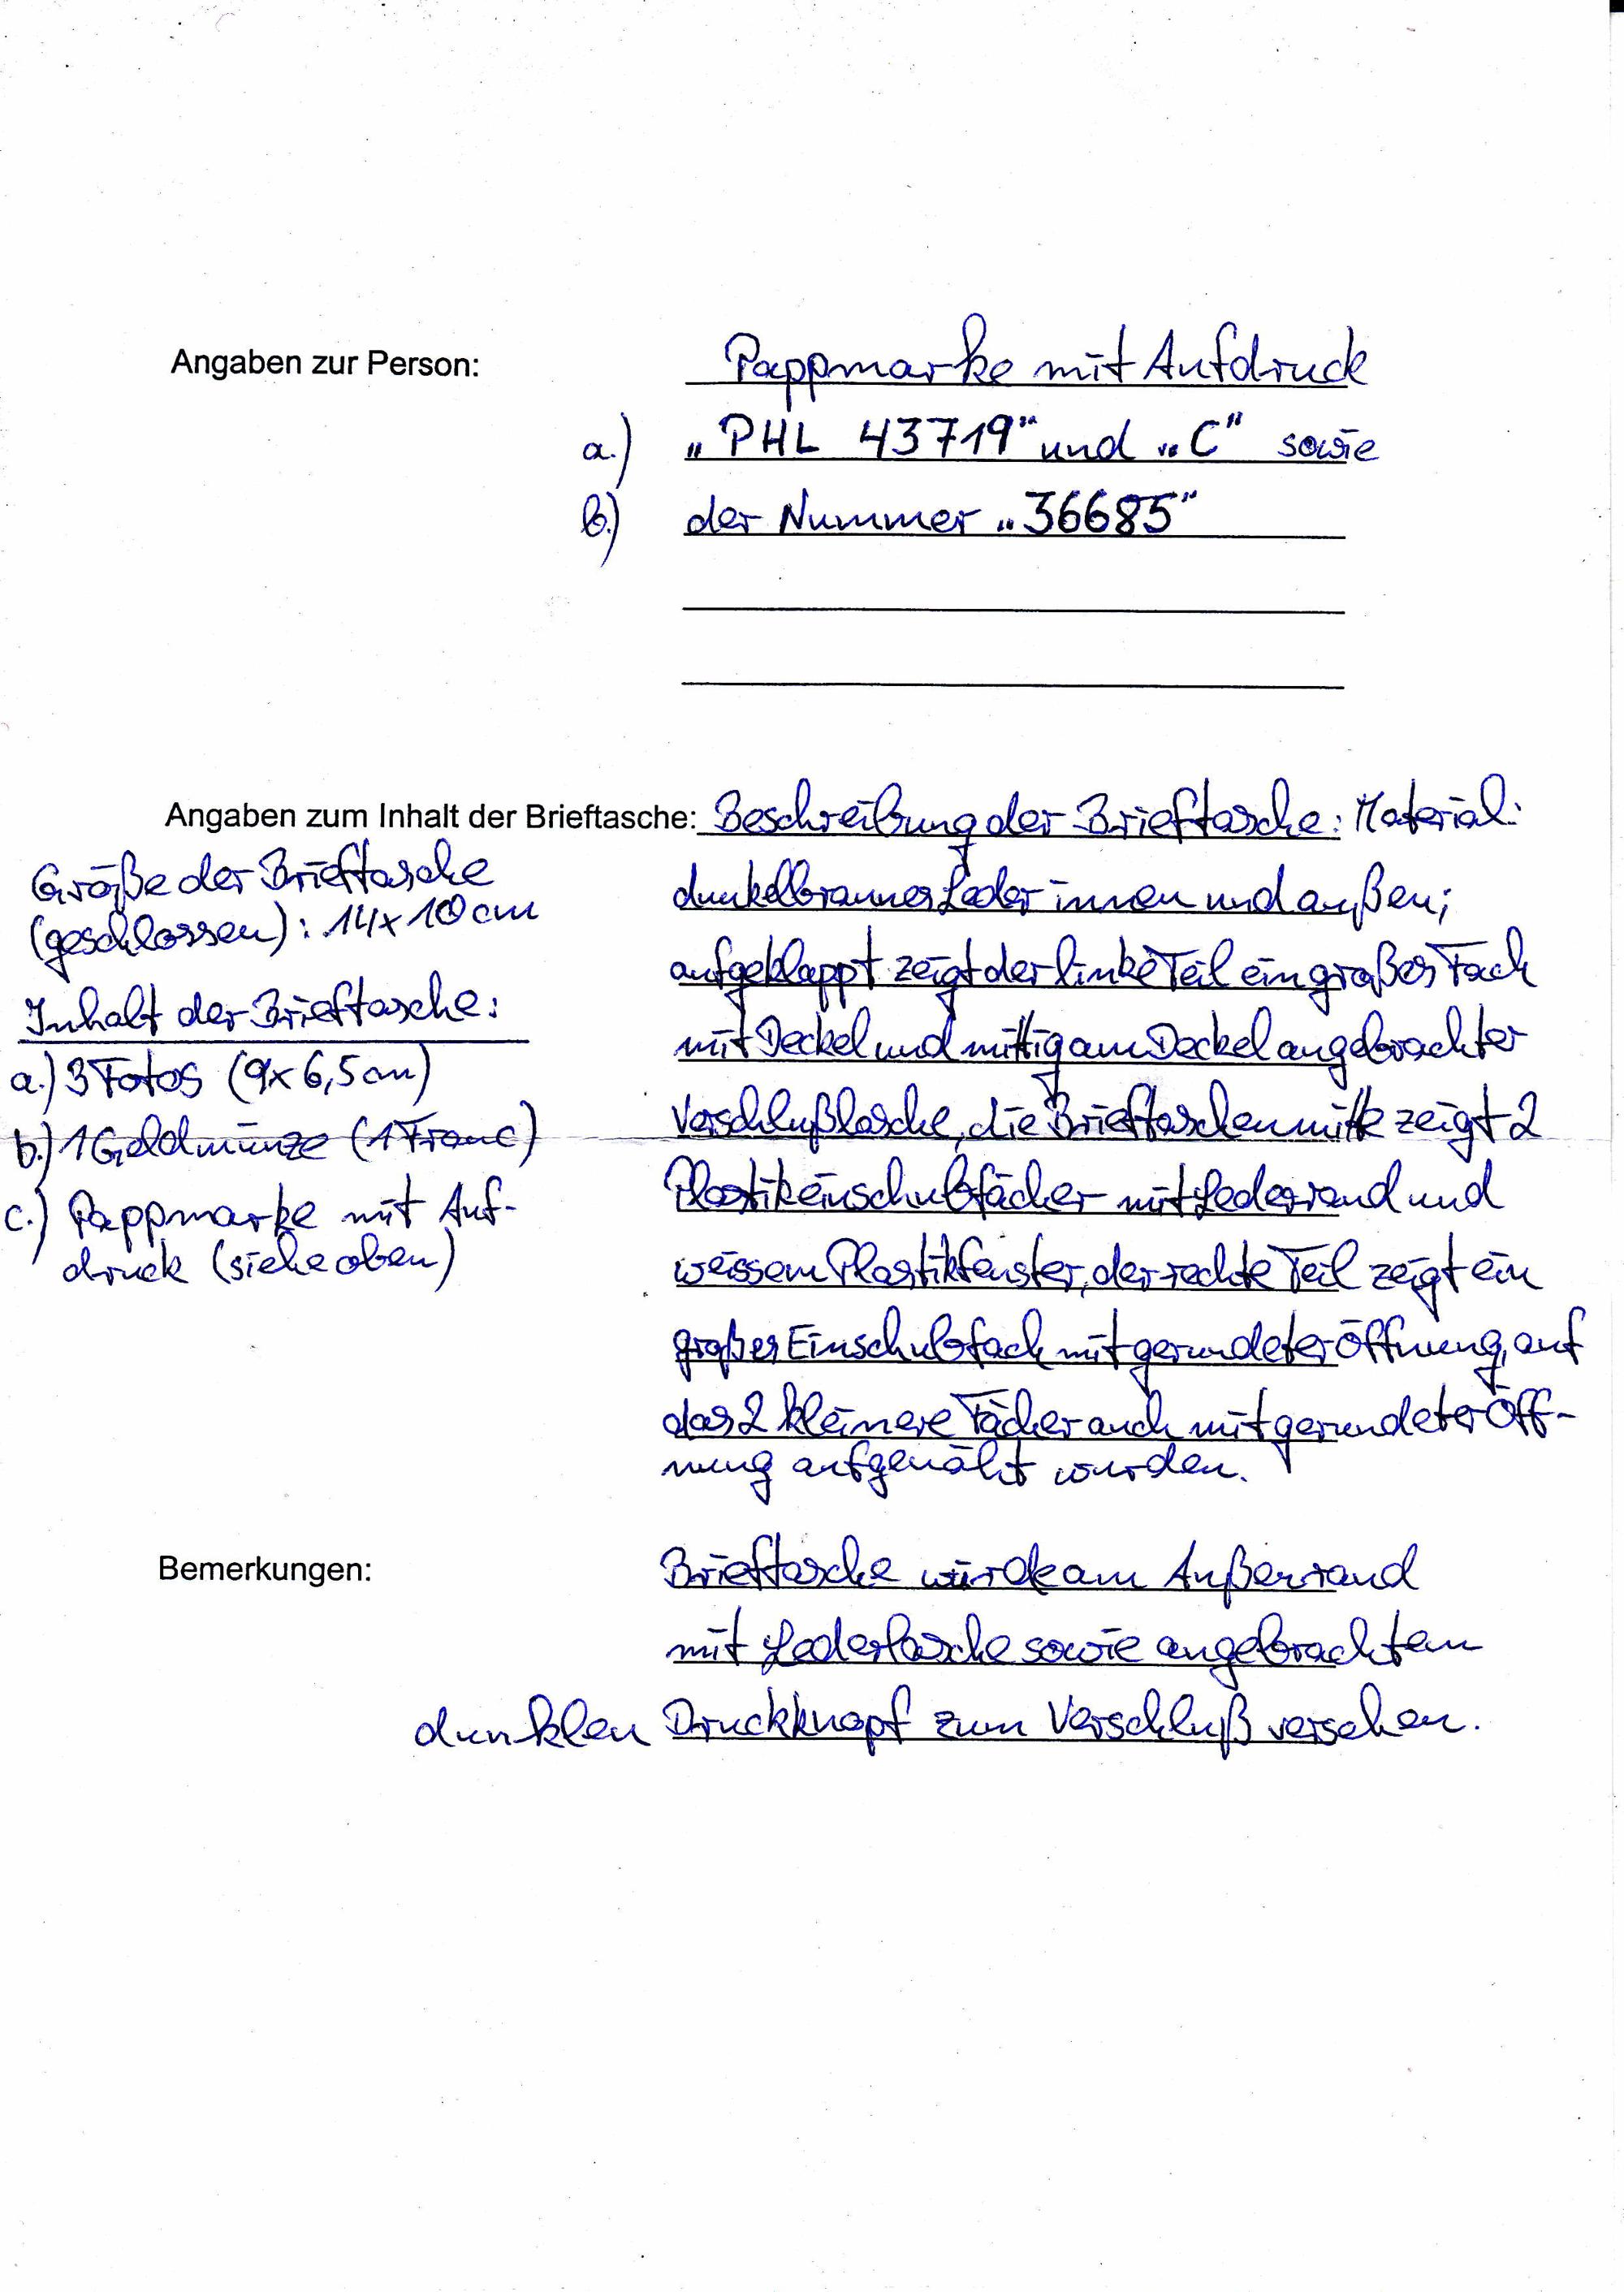 Angaben zur Person:
Pappmarke mit Aufdruck
a.) „PHL 43719" und „C" sowie
b.) der Nummer „36685"
Angaben zum Inhalt der Brieftasche: Beschreibung der Brieftasche: Material:
dunkelbraunes Leder innen und außen;
aufgeklappt zeigt der linke Teil ein großes Fach
mit Deckel und mittig am Deckel angebrachter
Verschlußlasche, die Brieftaschenmitte zeigt 2
Plastikeinschubfächer mit Lederrand und
weissem Plastikfenster, der rechte Teil zeigt ein
großes Einschubfach mit gerundeter Öffnung, auf
das 2 kleinere Fächer auch mit gerundeter Öff-
nung aufgenäht wurden.
Größe der Brieftasche
(geschlossen): 14x10cm
Inhalt der Brieftasche:
a.) 3 Fotos (9x6,5cm)
b.) 1 Geldmünze (1 Franc)
c.) Pappmarke mit Auf-
druck (siehe oben)
Bemerkungen:
Brieftasche wurde am Außenrand
mit Lederlasche sowie angebrachtem
dunklen Druckknopf zum Verschluß versehen.